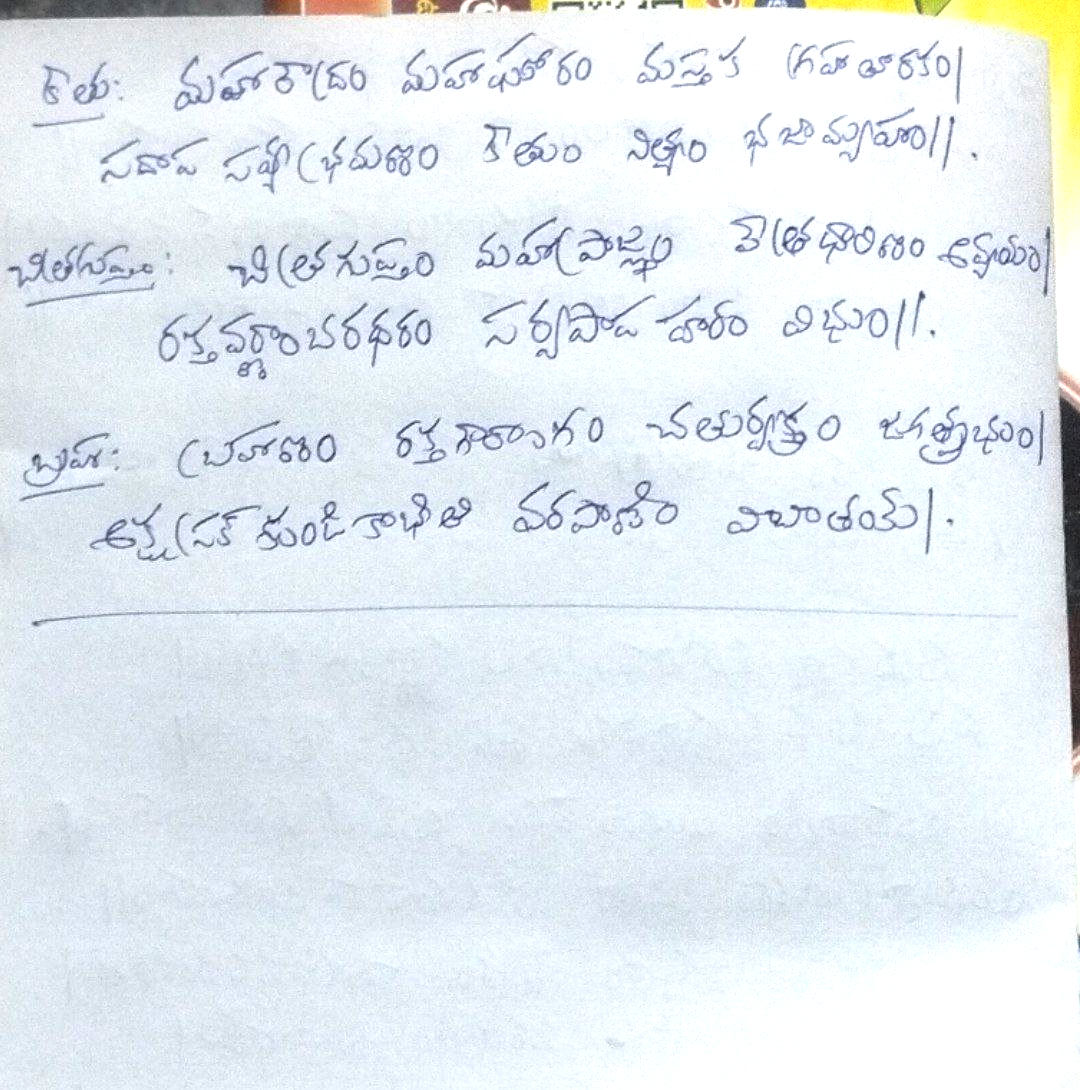 కేతు: మహారౌద్రం మహాఘోరం మస్తక గ్రహతారకం|
సదాప సవ్యభ్రమణం కేతుం నిత్యం భజామ్యహం||.
చిత్రగుప్తుం: చిత్రగుప్తం మహాప్రాజ్ఞం వేత్రధారిణం అవ్యయం|
రక్తవర్ణాంబరధరం సర్వపాప హరం విభుం||.
బ్రహ్మ: బ్రహ్మాణం రక్తగౌరాంగం చతుర్వక్త్రం జగత్ప్రభుం|
అక్షస్రక్ కుండికాభీతి వరపాణిం విభాతయే|.